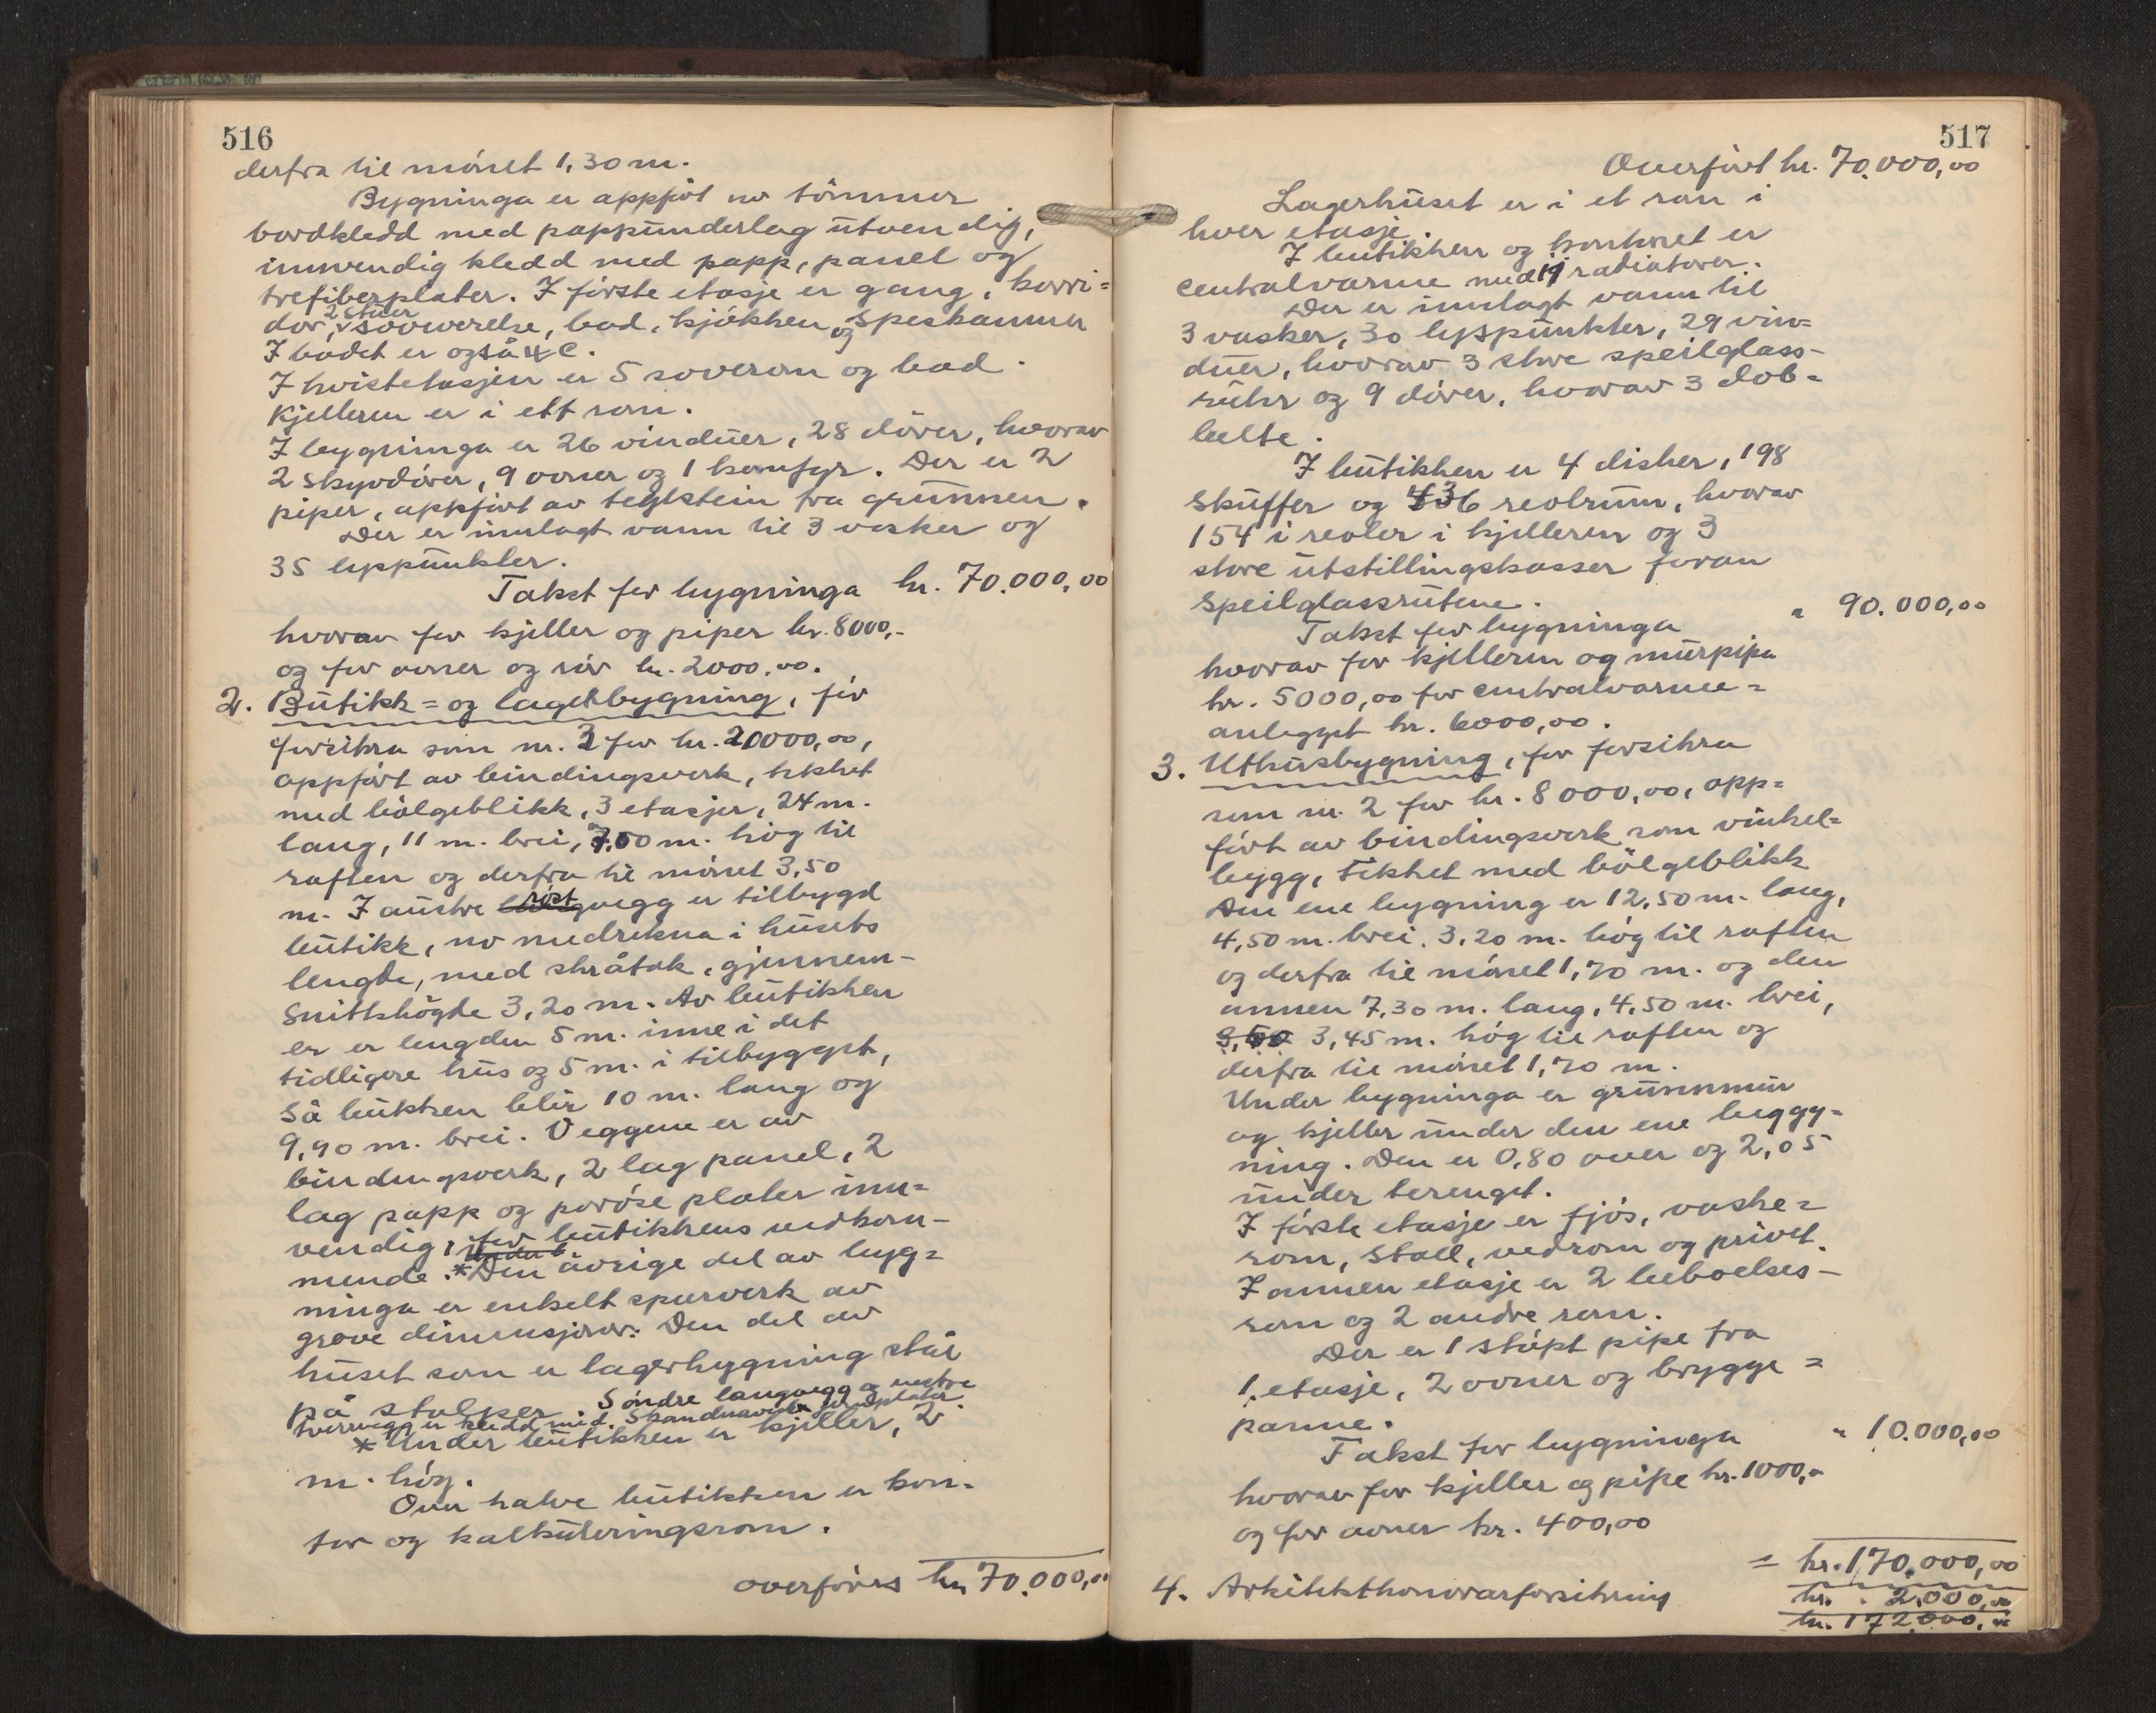 516
derfra til mönet 1,30 m.
Bygninga er oppfört av tömmer
bordkledd med pappunderlag utvendig,
innvendig kledd med papp, panel og
trefiberplater. I förste etasje er gang, korri=
2 stuer
dor, soveverelse, bad, kjökken og speskammer
I badet er også W C.
I kvistetasjen er 5 soverom og bad.
Kjelleren er i ett rom.
I bygninga er 26 vinduer, 28 dörer, hvorav
2 skyvdörer, 9 ovner og 1 komfyr. Der er 2
piper, oppfört av teglstein fra grunnen.
Der er innlagt vann til 3 vasker og
35 lyspunkter.
Takst for bygninga kr. 70.000,00
hvorav for kjeller og piper kr. 8000,-
og for ovner og rör kr. 2000,00.
2. Butikk= og lagerbygning, för
forsikra som nr. 3 for kr. 20000,00,
oppfört av bindingsverk, tekket
med bölgeblikk, 3 etasjer, 24 m.
lang, 11 m. brei, 7,00 m. hög til
raften og derfra til mönet 3,50
m. I austre röstvegg er tilbygd
butikk, no medrekna i husets
lengde, med skråtak, gjennem-
snittshögde 3,20 m. Av butikken
er er lengden 5 m. inne i det
tidligere hus og 5 m. i tilbygget,
så butikken blir 10 m. lang og
9,90 m. brei. Veggene er av
bindingsverk, 2 lag panel, 2
lag papp og poröse plater inn=
vendig, for butikkens vedkom-
mende.* Den övrige del av byg=
ninga er enkelt sperverk av
grove dimensjoner. Den del av
huset som er lagerbygning står
på stolper. Söndre langvegg og vestre
tverrvegg er kledd med Skandinavisk plater.
* Under butikken er kjeller, 2
m. hög.
Over halve butikken er kon-
tor og kalkuleringsrom.
overföres kr. 70.000,00
517
Overfört kr. 70.000,00
Lagerhuset er i et rom i
hver etasje.
I butikken og kontoret er
centralvarme med 19 radiatorer.
Der er innlagt vann til
3 vasker, 30 lyspunkter, 29 vin=
duer, hvorav 3 store speilglass-
ruter og 9 dörer, hvorav 3 dob=
belte.
I butikken er 4 disker, 198
skuffer og 436 reolrum, hvorav
154 i reoler i kjelleren og 3
store utstillingskasser foran
speilglassrutene.
Takst for bygninga " 90.000,00
hvorav for kjelleren og murpipa
kr. 5000,00 for centralvarme=
anlegget kr. 6000,00.
3. Uthusbygning, för forsikra
som nr. 2 for kr. 8000,00, opp=
fört av bindingsverk som vinkel=
bygg, tekket med bölgeblikk
Den ene bygning er 12,50 m. lang,
4,50 m. brei, 3,20 m. hög til raften
og derfra til mönet 1,70 m. og den
annen 7,30 m. lang, 4,50 m. brei,
3,50 3,45 m. hög til raften og
derfra til mönet 1,70 m.
Under bygninga er grunnmur
og kjeller under den ene byggy=
ning. Den er 0,80 over og 2,05
under terenget.
I förste etasje er fjös, vaske=
rom, stall, vedrom og privet.
I annen etasje er 2 beboelses-
rom og 2 andre rom.
Der er 1 stöpt pipe fra
1. etasje, 2 ovner og brygge=
panne.
Takst for bygninga " 10.000,00
hvorav for kjeller og pipe kr. 1000,-
og for ovner kr. 400,00
= kr. 170.000,00
4. Arkitekthonorarforsikring kr. 2.000,00
kr. 172.000,00